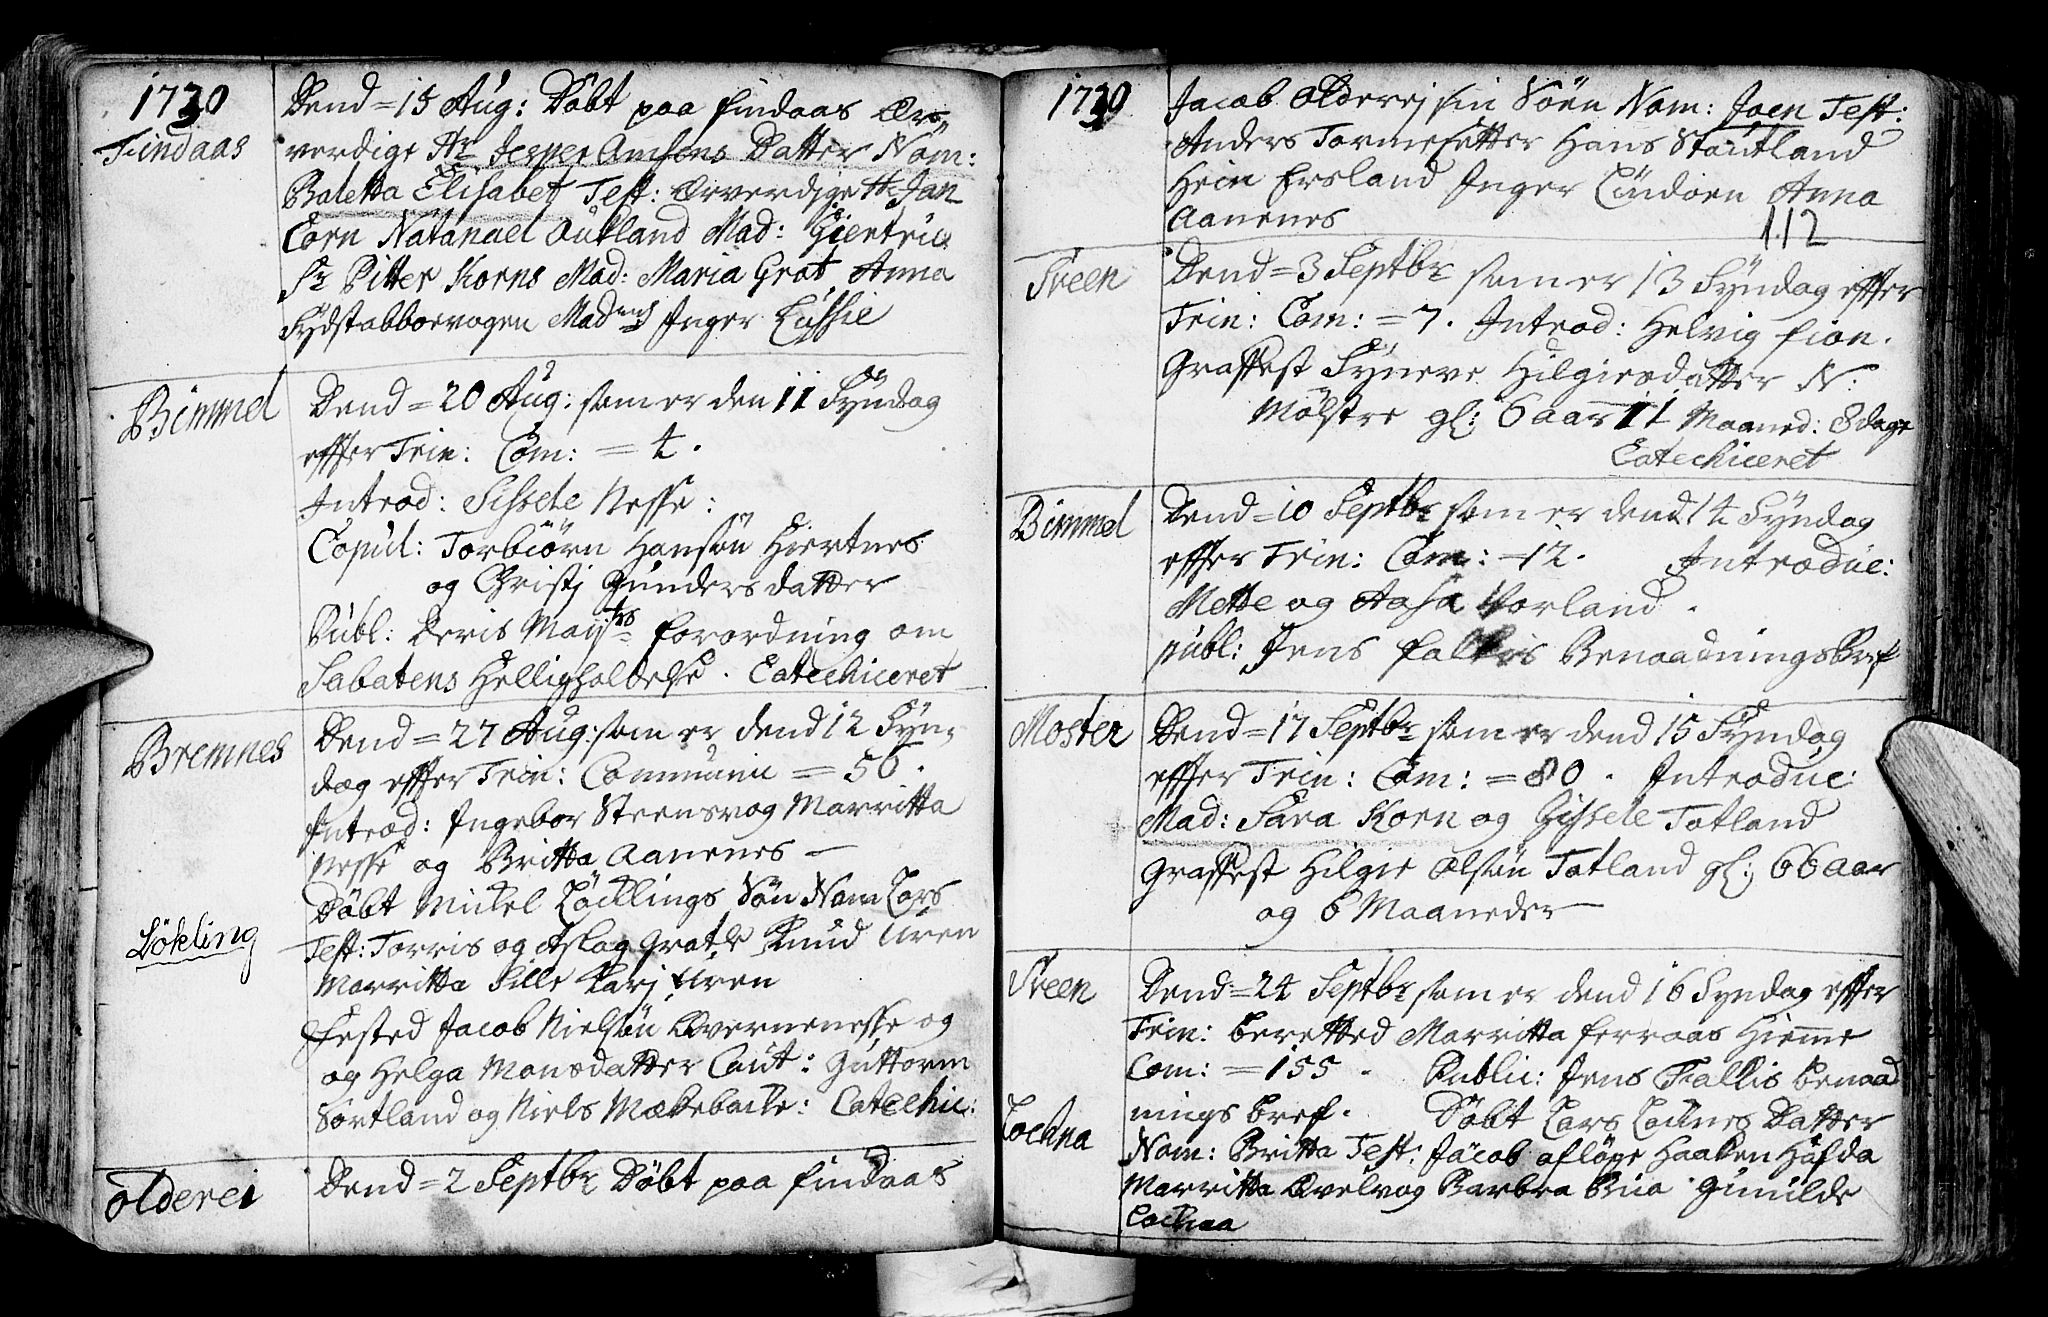 1730
Findaas
Dend = 15 Aug: Döbt paa findaas Ær,
verdige Hr Jesper Amsons Datter Nom:
Baletta Elisabet Test: Ærverdige Hr Jan
Corn Natanael Outland Mad: Giertrú
Sr Pitter Korns Mad: Maria Grot Anna
Sydstabboevogen Mad Inger Lússie
Bömmel
Dend = 20 Aúg: som er den 11 Syndag
effter Trin: Com: = 4.
Introd: Sissele Nesse:
Copúl: Torbiörn Hansön Hiertnes
og Christj Gúndersdatter
Públ: Deris Mayts forordning om
Sabatens Helligholdelse. Catechiceret
Bremnes
Dend = 27 Aúg: som er dend 12 Syn,
dag effter Trin: Communic = 56.
Introd: Ingebor Steensvog Marritta
Nesse og Britta Aanenes —
Döbt Mickel Löcklings Sön Nom Lars
Lökling
Test: Torris og Aslag Grotle Knúd Úren
Marritta Lille Karj Úren
Fested Jacob Nielsön Øvernenesse og
og Helga Monsdatter Caút: Gúttorm
Sortland og Niels Mækebacke: Catechic:
olderei
Dend = 2 Septbr Döbt paa findaas
1730
Jacob Olderej sin Sön Nom: Joen Test:
Anders Tormesetter Hans Stoútland
Hein Ersland Inger Lindöen Anna
Aanenes
112
Sveen
Dend = 3 Septbr som er 13 Syndag effter
Trin: Com: = 7. Introd: Helvig fion.
Graffest Syneve Hilgiesdatter N:
Mölstre gl: 6 aar 11 Maaned: 8 dage
Catechiceret
Bömmel
Dend = 10 Septbr som er dend 14 Syndag
effter Trin: Com: = 12. Introdúc:
Mette og Aasa Vorland.
públ: Jens falkis BenaadningsBref
Moster
Dend = 17 Septbr som er dend 15 Syndag
effter Trin: Com: = 80. Introdúc:
Mad: Sara Korn og Gissele Totland
Graffest Hilgie Olsön Totland gl: 66 aar
og 6 Maaneder
Sveen
Dend = 24 Septbr som er dend 16 Syndag effter
Trin: beretted Marritta ferraas Hieme
Com: = 155. Públic: Jens Fallis benaad
nings bref. Döbt Lars Locknes Datter
Lockna
Nom: Britta Test: Jacob aflöpe Haaken Hofda
Marritta Øvelvog Barbra Búa Gúnilde
Locknaa